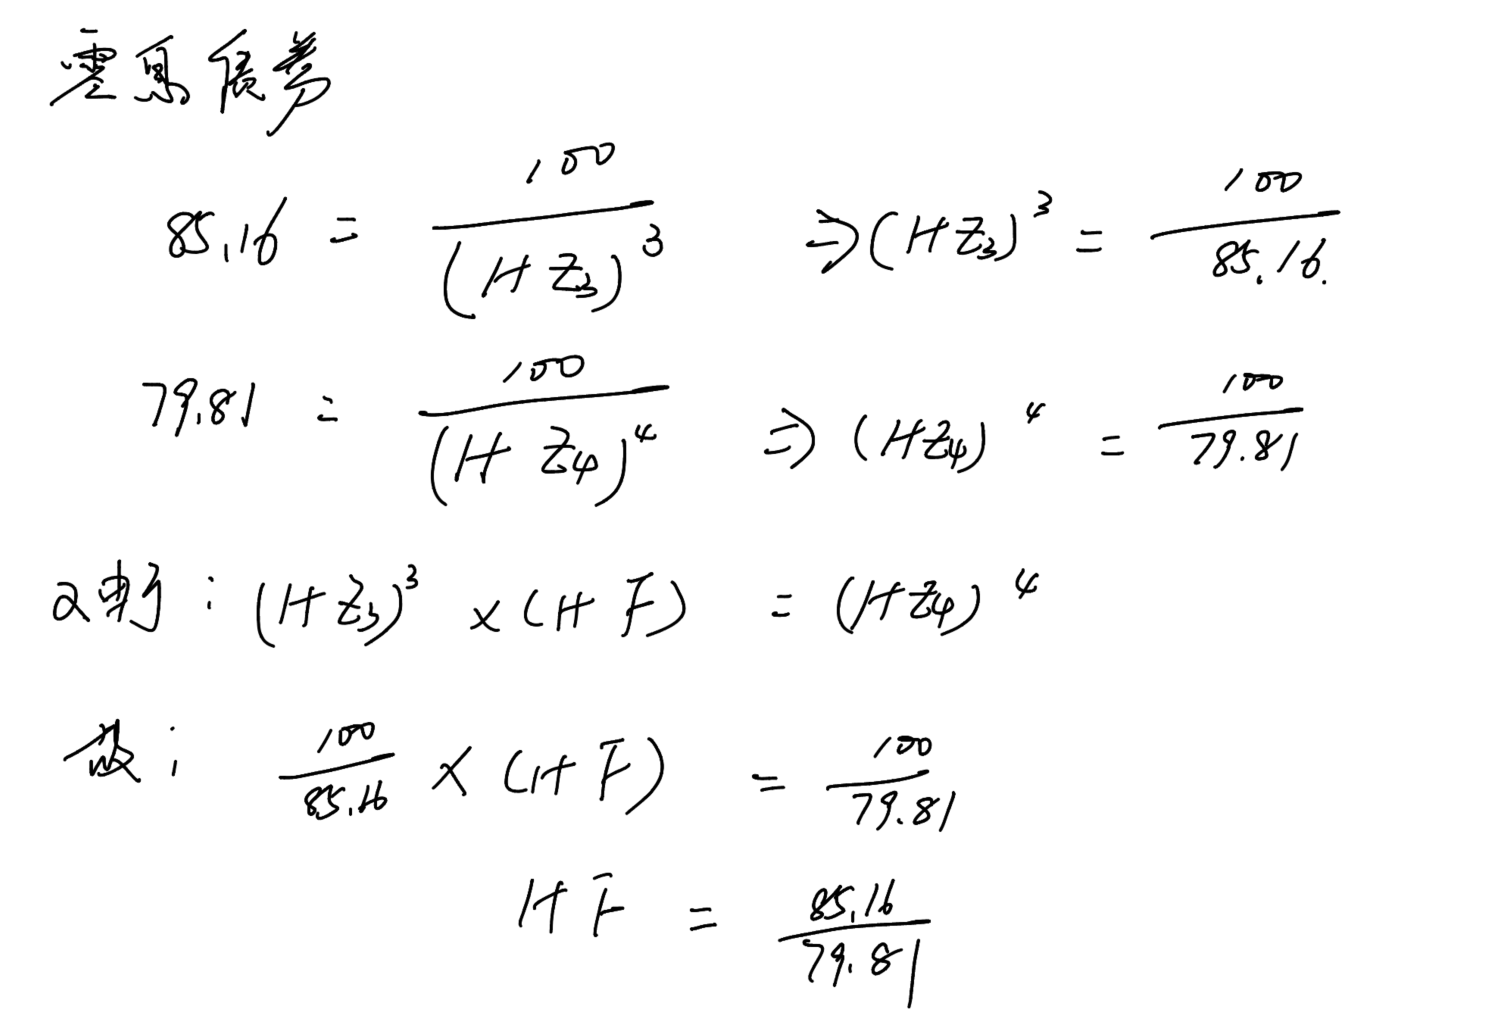 零息债券
85.16 = 100 / (1+Z₃)³ ⇒ (1+Z₃)³ = 100 / 85.16.
79.81 = 100 / (1+Z₄)⁴ ⇒ (1+Z₄)⁴ = 100 / 79.81
: (1+Z₃)³ × (1+F) = (1+Z₄)⁴
故: 100 / 85.16 × (1+F) = 100 / 79.81
1+F = 85.16 / 79.81